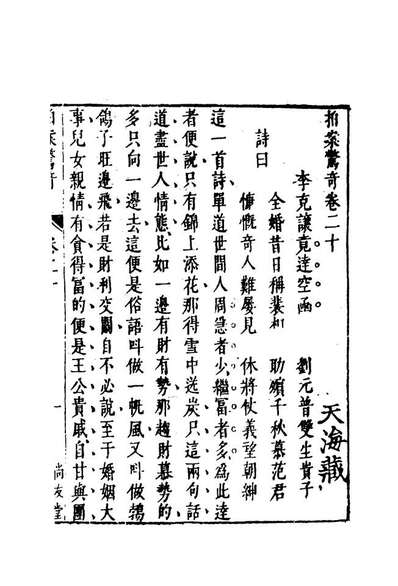 拍案驚奇卷二十
李克讓竟達空函　劉元普雙生貴子
天海藏
詩曰
全婚昔日稱裴相　助殯千秋慕范君
慷慨奇人難屢見　休將仗義望朝紳
這一首詩單道世間人周急者少繼富者多為此達
者便說只有錦上添花那得雪中送炭只這兩句話
道盡世人情態比如一邊有財有勢那趨財慕勢的
多只向一邊去這便是俗語叫做一帆風又叫做鵓
鴿子旺邊飛若是財利交關自不必說至于婚姻大
事兒女親情有貪得富的便是王公貴戚自甘與團
拍案驚奇　卷二十　一　尚友堂